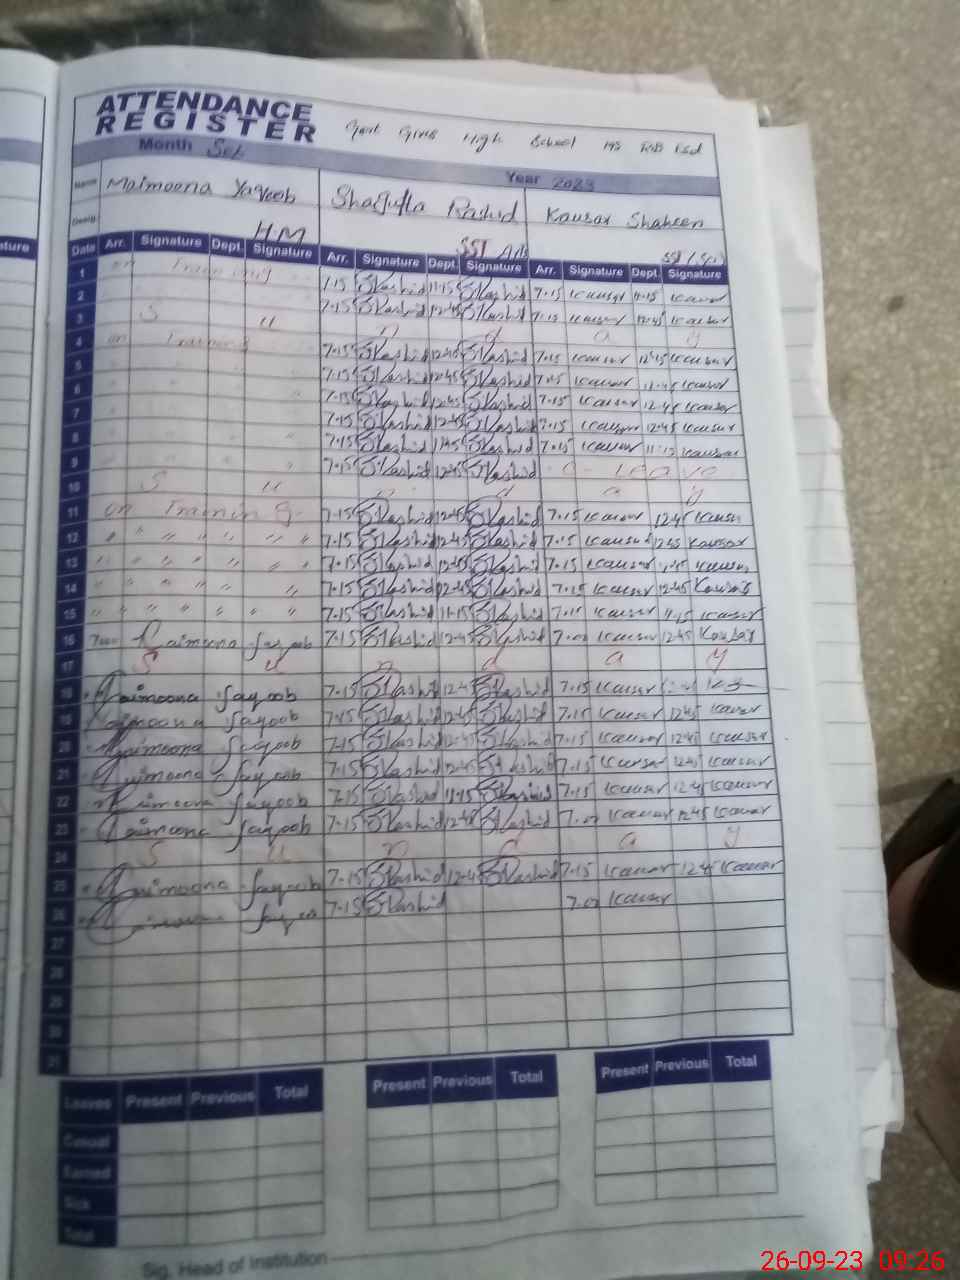 ATTENDANCE
REGISTER
Govt Girls High School 195 RB Fsd
Month Sep Year 2023
Name Maimoona Yaqoob Shagufta Rashid Kausar Shaheen
Desig. HM SST Arts SST (Sci)
Date Arr. Signature Dept. Signature Arr. Signature Dept. Signature Arr. Signature Dept. Signature
1 on Training 7-15 SRashid 11-15 SRashid 7-15 Kausar 11-15 Kausar
2 7-15 SRashid 12-45 SRashid 7-15 Kausar 12-45 Kausar
3 S u n d a y
4 on Training 7-15 SRashid 12-45 SRashid 7-15 Kausar 12-45 Kausar
5 " " " 7-15 SRashid 12-45 SRashid 7-15 Kausar 12-45 Kausar
6 " " " 7-15 SRashid 12-45 SRashid 7-15 Kausar 12-45 Kausar
7 " " " 7-15 SRashid 12-45 SRashid 7-15 Kausar 12-45 Kausar
8 " " " 7-15 SRashid 11-15 SRashid 7-15 Kausar 11-15 Kausar
9 " " " 7-15 SRashid 12-45 SRashid C- Leave
10 S u n d a y
11 on Training 7-15 SRashid 12-45 SRashid 7-15 Kausar 12-45 Kausar
12 " " " " " " 7-15 SRashid 12-45 SRashid 7-15 Kausar 12-45 Kausar
13 " " " " " " 7-15 SRashid 12-45 SRashid 7-15 Kausar 12-45 Kausar
14 " " " " " 7-15 SRashid 12-45 SRashid 7-15 Kausar 12-45 Kausar
15 " " " " " " 7-15 SRashid 11-15 SRashid 7-15 Kausar 11-15 Kausar
16 7:00 Maimoona Yaqoob 7-15 SRashid 12-45 SRashid 7-07 Kausar 12-45 Kausar
17 S u n d a y
18 Maimoona Yaqoob 7-15 SRashid 12-45 SRashid 7-15 Kausar
19 Maimoona Yaqoob 7-15 SRashid 12-45 SRashid 7-15 Kausar 12-45 Kausar
20 Maimoona Yaqoob 7-15 SRashid 12-45 SRashid 7-15 Kausar 12-45 Kausar
21 Maimoona Yaqoob 7-15 SRashid 12-45 SRashid 7-15 Kausar 12-45 Kausar
22 Maimoona Yaqoob 7-15 SRashid 11-15 SRashid 7-15 Kausar 12-45 Kausar
23 Maimoona Yaqoob 7-15 SRashid 12-45 SRashid 7-07 Kausar 12-45 Kausar
24 S u n d a y
25 Maimoona Yaqoob 7-15 SRashid 12-45 SRashid 7-15 Kausar 12-45 Kausar
26 Maimoona Yaqoob 7-15 SRashid 7-07 Kausar
27
28
29
30
31
Leaves Present Previous Total Present Previous Total Present Previous Total
Casual
Earned
Sick
Total
Sig. Head of Institution
26-09-23 09:26